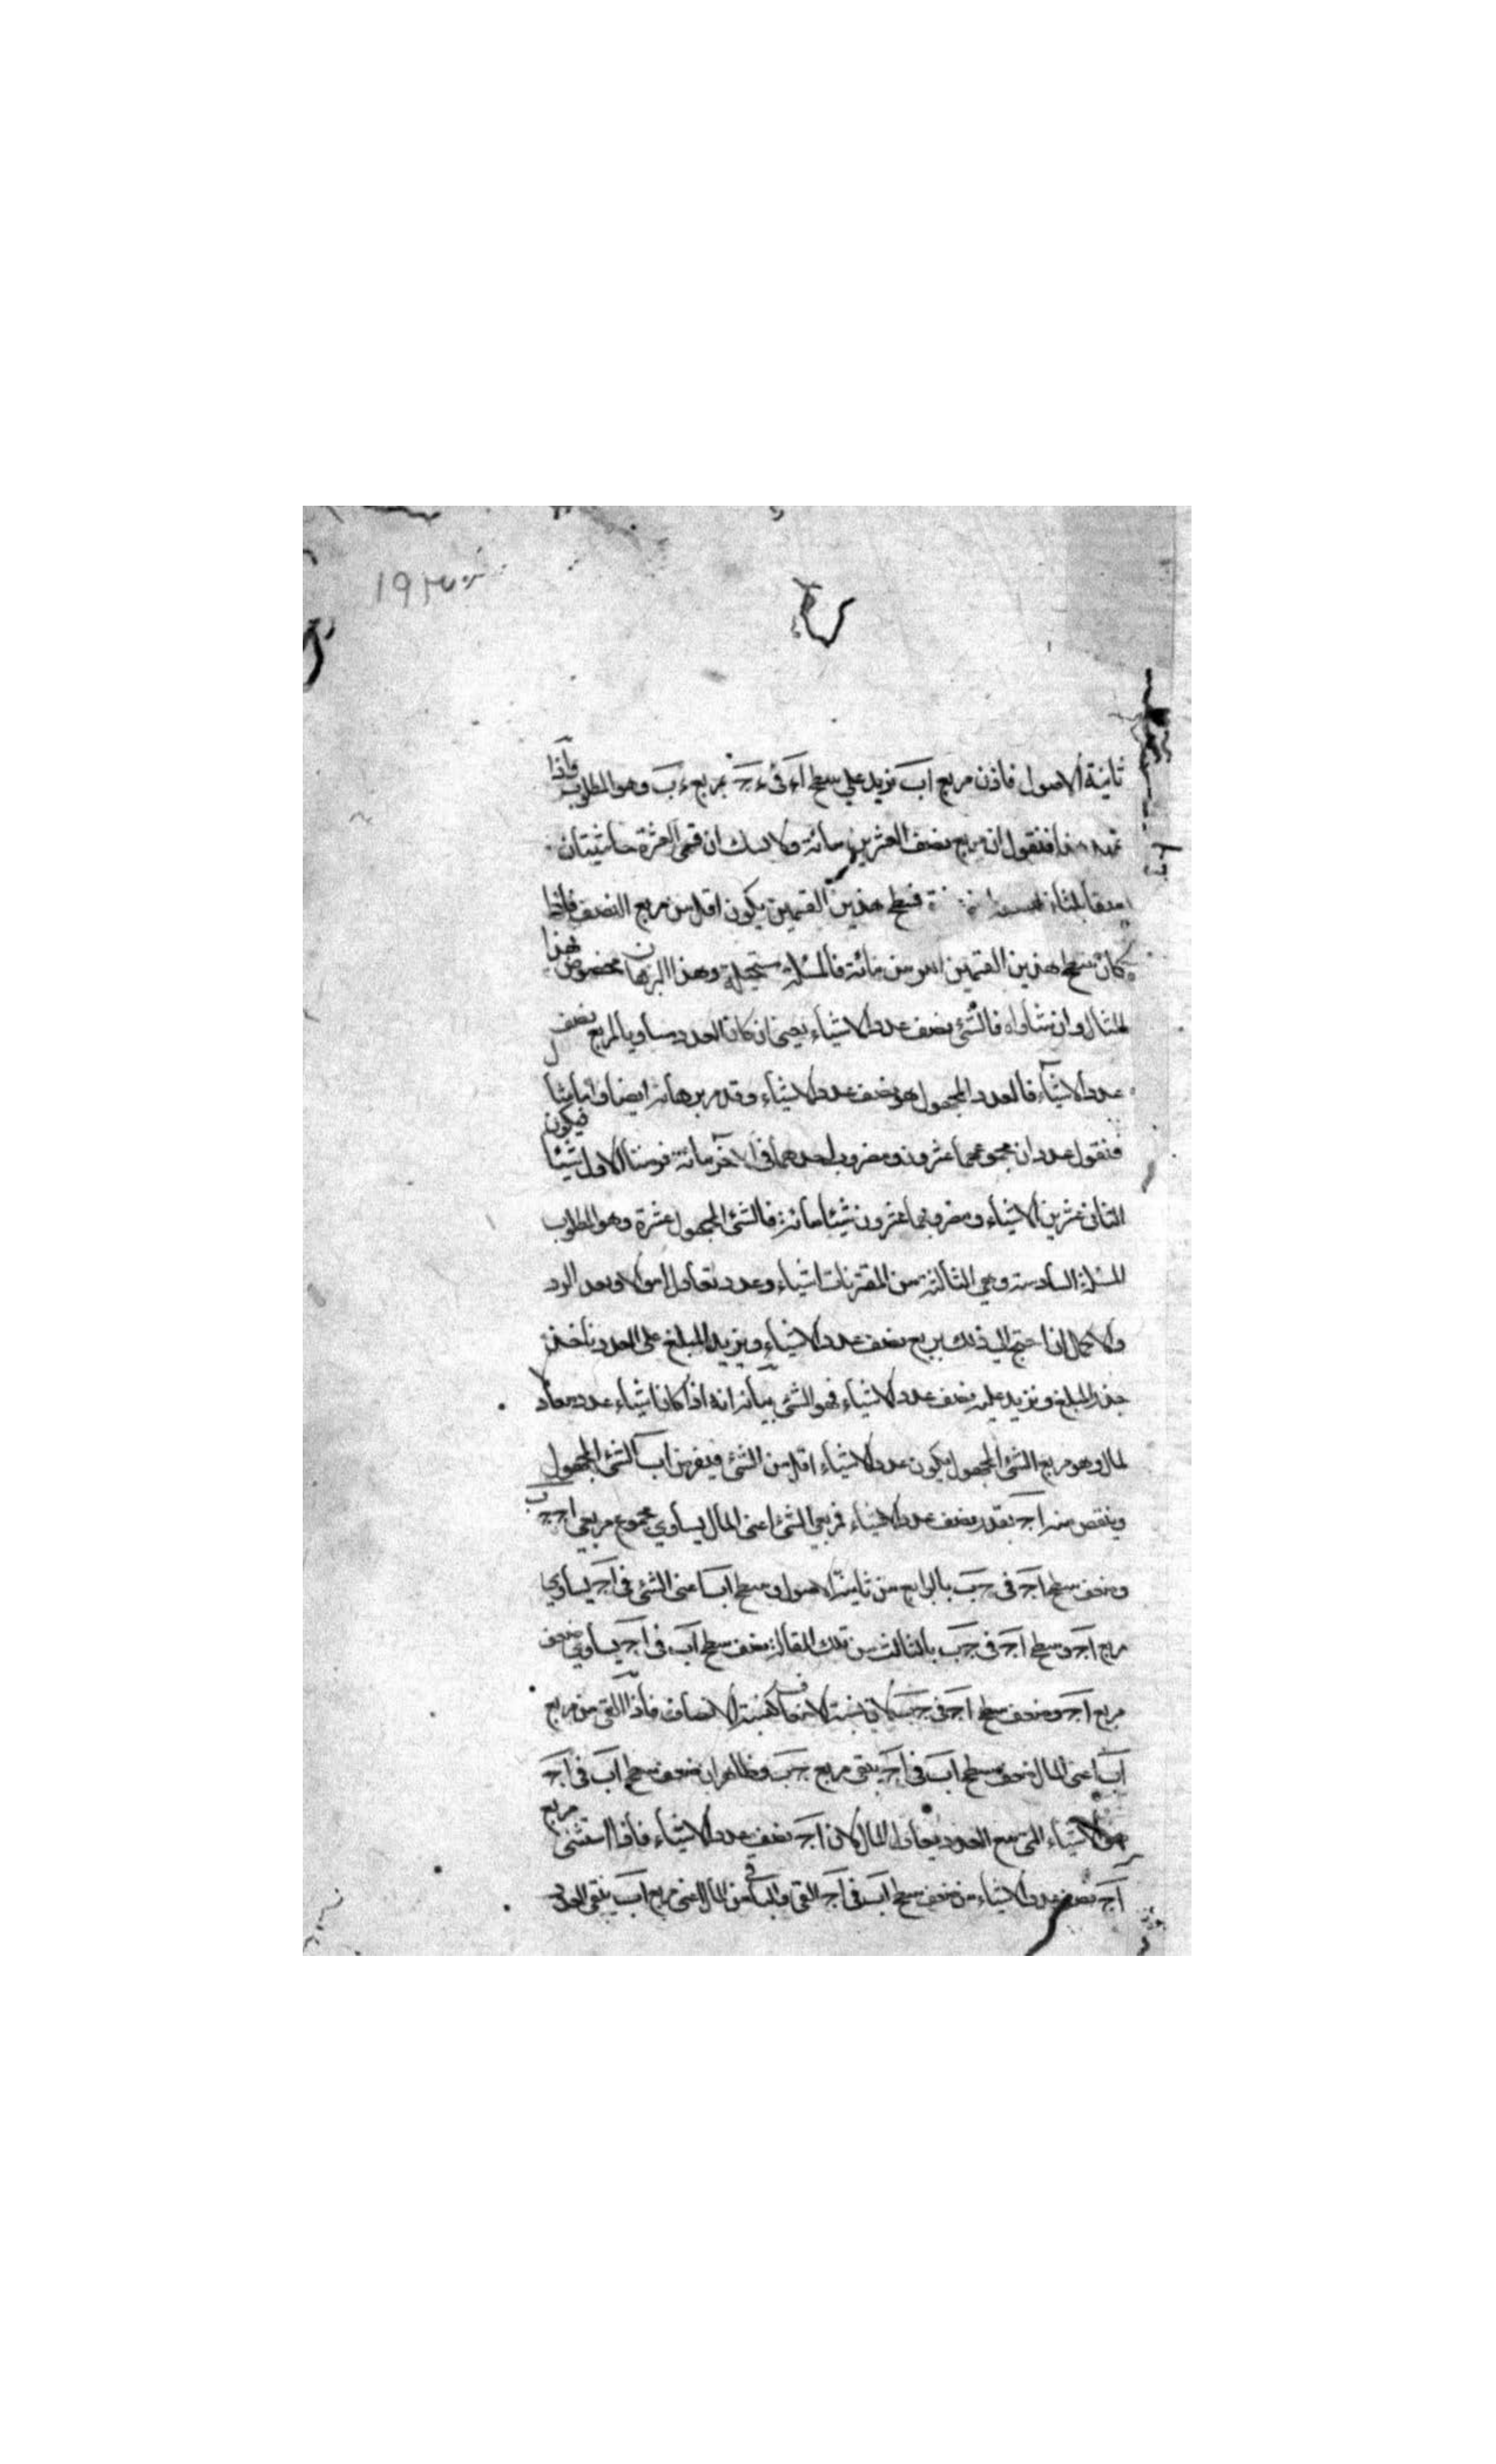 ١٩٢
ثانية الاصول فاذن مربع اب نزيد على سطح اء في ء جـ بمربع ء ب وهو المطلوب واذا
تمهد هذا فنقول ان مربع نصف العشرين مائة ولا شك ان قسمي العشرة حاشيتان
فسطح هذين القسمين يكون اقل من مربع النصف فاذا
كان سطح هذين القسمين اكثر من مائة فالمسئلة مستحيلة وهذا البرهان مخصوص بهذا
المثال وان تساواه فالشئ نصف عدد الاشياء يعني ان كان العدد مساويا لمربع نصف
عدد الاشياء فالعدد المجهول هو نصف عدد الاشياء وقد مر برهانه ايضا واما مثاله
فنقول عددان مجموعهما عشرون ومضروب احدهما في الاخر مائة فرضنا الاول شيئا فيكون
الثاني عشرين الا شياء ومضروبهما عشرون شيئا مائة فالشئ المجهول عشرة وهو المطلوب
المسئلة السادسة وهي الثالثة من المقترنات اشياء وعدد تعادل اموالا وبعد الرد
والاكمال اذا احتج الى ذلك يربع نصف عدد الاشياء ويزيد المبلغ على العدد ناخذ
جذر المبلغ ونزيد عليه نصف عدد الاشياء فهو الشئ بيانه انه اذا كان اشياء عدد معاد
لمال وهو مربع الشئ المجهول يكون عدد الاشياء اقل من الشئ فيفرض اب الشئ المجهول
وينقص منه اجـ بقدر نصف عدد الاشياء فمربع الشئ اعني المال يساوي مجموع مربعي اجـ جـ ب
وضعف سطح اجـ في جـ ب بالرابع من ثانية الاصول وسطح اب اعني الشئ في اجـ يساوي
مربع اجـ وسطح اجـ في جـ ب بالثالث من تلك المقالة فضعف سطح اب في اجـ يساوي ضعف
مربع اجـ وضعف سطح اجـ في جـ ب لان نسبة الاضعاف كنسبة الانصاف فاذا القي من مربع
اب اعني المال ضعف سطح اب في اجـ يبقى مربع جـ ب وظاهر ان ضعف سطح اب في اجـ
هو الاشياء التي مع العدد يعادل المال لان اجـ نصف عدد الاشياء فاذا استثنى مربع
اجـ نصف عدد الاشياء من ضعف سطح اب في اجـ القي والباقي من المال اعني مربع اب يبقى العدد